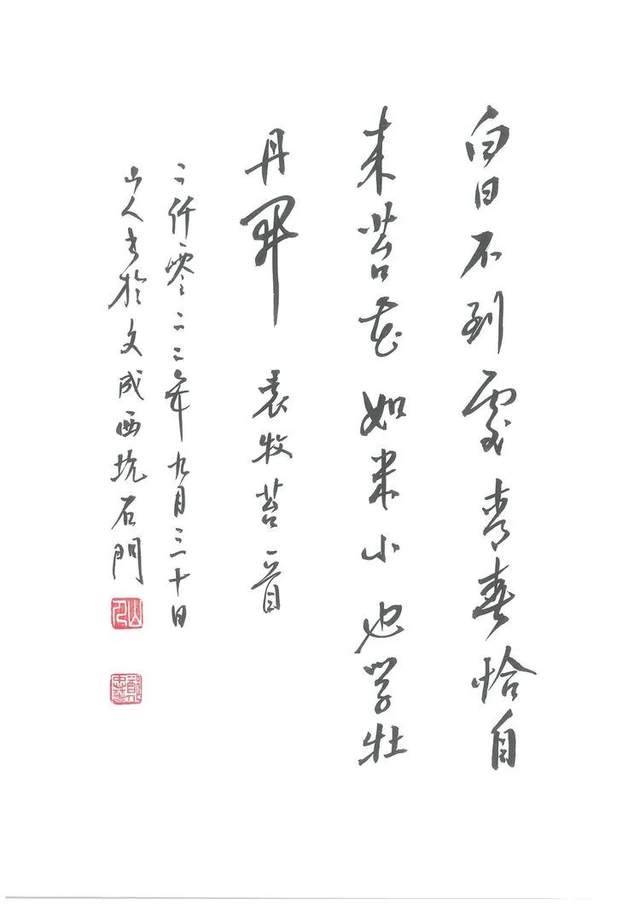 白日不到處青春恰自
来苔花如米小也学牡
丹開 袁牧苔一首
二仟零二二年九月三十日
山人书於文成西坑石門
山人